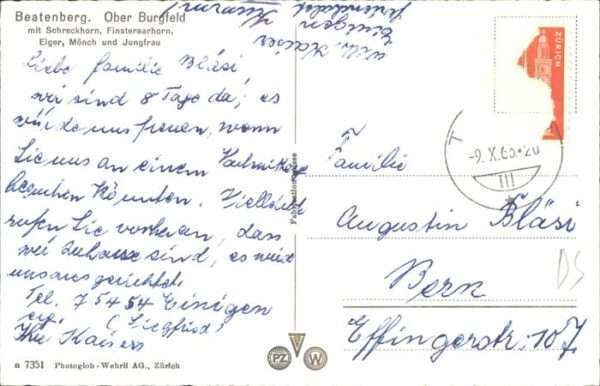 Beatenberg. Ober Burgfeld
mit Schreckhorn, Finsteraarhorn,
Eiger, Mönch und Jungfrau
Einigen
Liebe Familie Bläsi
wir sind 8 Tage da; es
würde uns freuen, wenn
Sie uns an einem
besuchen könnten. Vielleicht
rufen Sie vorher an, dass
wir Zuhause sind, es wird
uns ausgerichtet.
Tel. 75454 Einigen
(Siegfried)
Ihre Kaisers
ZÜRICH
T
-9.X.65-20
III
Familie
Augustin Bläsi
Bern
Effingerstr. 107
DS
PZ W
n 7351 Photoglob-Wehrli AG., Zürich